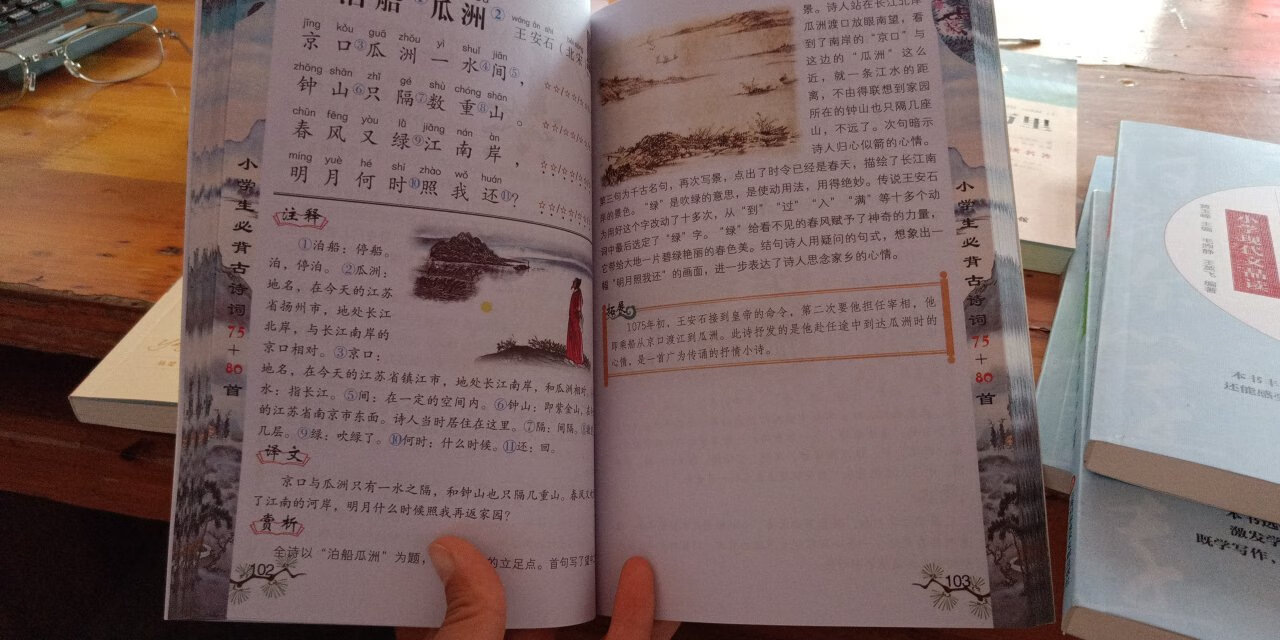 泊船①瓜洲②
wáng ān shí
王安石（北宋
jīng kǒu guā zhōu yì shuǐ jiān
京口③瓜洲一水④间⑤，
zhōng shān zhǐ gé shù chóng shān
钟山⑥只隔⑦数重⑧山。
chūn fēng yòu lǜ jiāng nán àn
春风又绿⑨江南岸，
míng yuè hé shí zhào wǒ huán
明月何时⑩照我还⑪？
注释
①泊船：停船。
泊，停泊。②瓜洲：
地名，在今天的江苏
省扬州市，地处长江
北岸，与长江南岸的
京口相对。③京口：
地名，在今天的江苏省镇江市，地处长江南岸，和瓜洲相对。
水：指长江。⑤间：在一定的空间内。⑥钟山：即紫金山，
的江苏省南京市东面。诗人当时居住在这里。⑦隔：间隔。
几层。⑨绿：吹绿了。⑩何时：什么时候。⑪还：回。
译文
京口与瓜洲只有一水之隔，和钟山也只隔几重山。春风又
了江南的河岸，明月什么时候照我再返家园？
赏析
全诗以“泊船瓜洲”为题，
的立足点。首句写了望
102
小学生必背古诗词75+80首
景。诗人站在长江北岸
瓜洲渡口放眼南望，看
到了南岸的“京口”与
这边的“瓜洲”这么
近，就一条江水的距
离，不由得联想到家园
所在的钟山也只隔几座
山，不远了。次句暗示
诗人归心似箭的心情。
第三句为千古名句，再次写景，点出了时令已经是春天，描绘了长江南
岸的景色。“绿”是吹绿的意思，是使动用法，用得绝妙。传说王安石
为用好这个字改动了十多次，从“到”“过”“入”“满”等十多个动
词中最后选定了“绿”字。“绿”给看不见的春风赋予了神奇的力量，
它带给大地一片碧绿艳丽的春色美。结句诗人用疑问的句式，想象出一
幅“明月照我还”的画面，进一步表达了诗人思念家乡的心情。
拓展
1075年初，王安石接到皇帝的命令，第二次要他担任宰相，他
即乘船从京口渡江到瓜洲。此诗抒发的是他赴任途中到达瓜洲时的
心情，是一首广为传诵的抒情小诗。
103
小学生必背古诗词75+80首
小学现代文品读
本书书
还能感
本书选
激发学
既学写作，